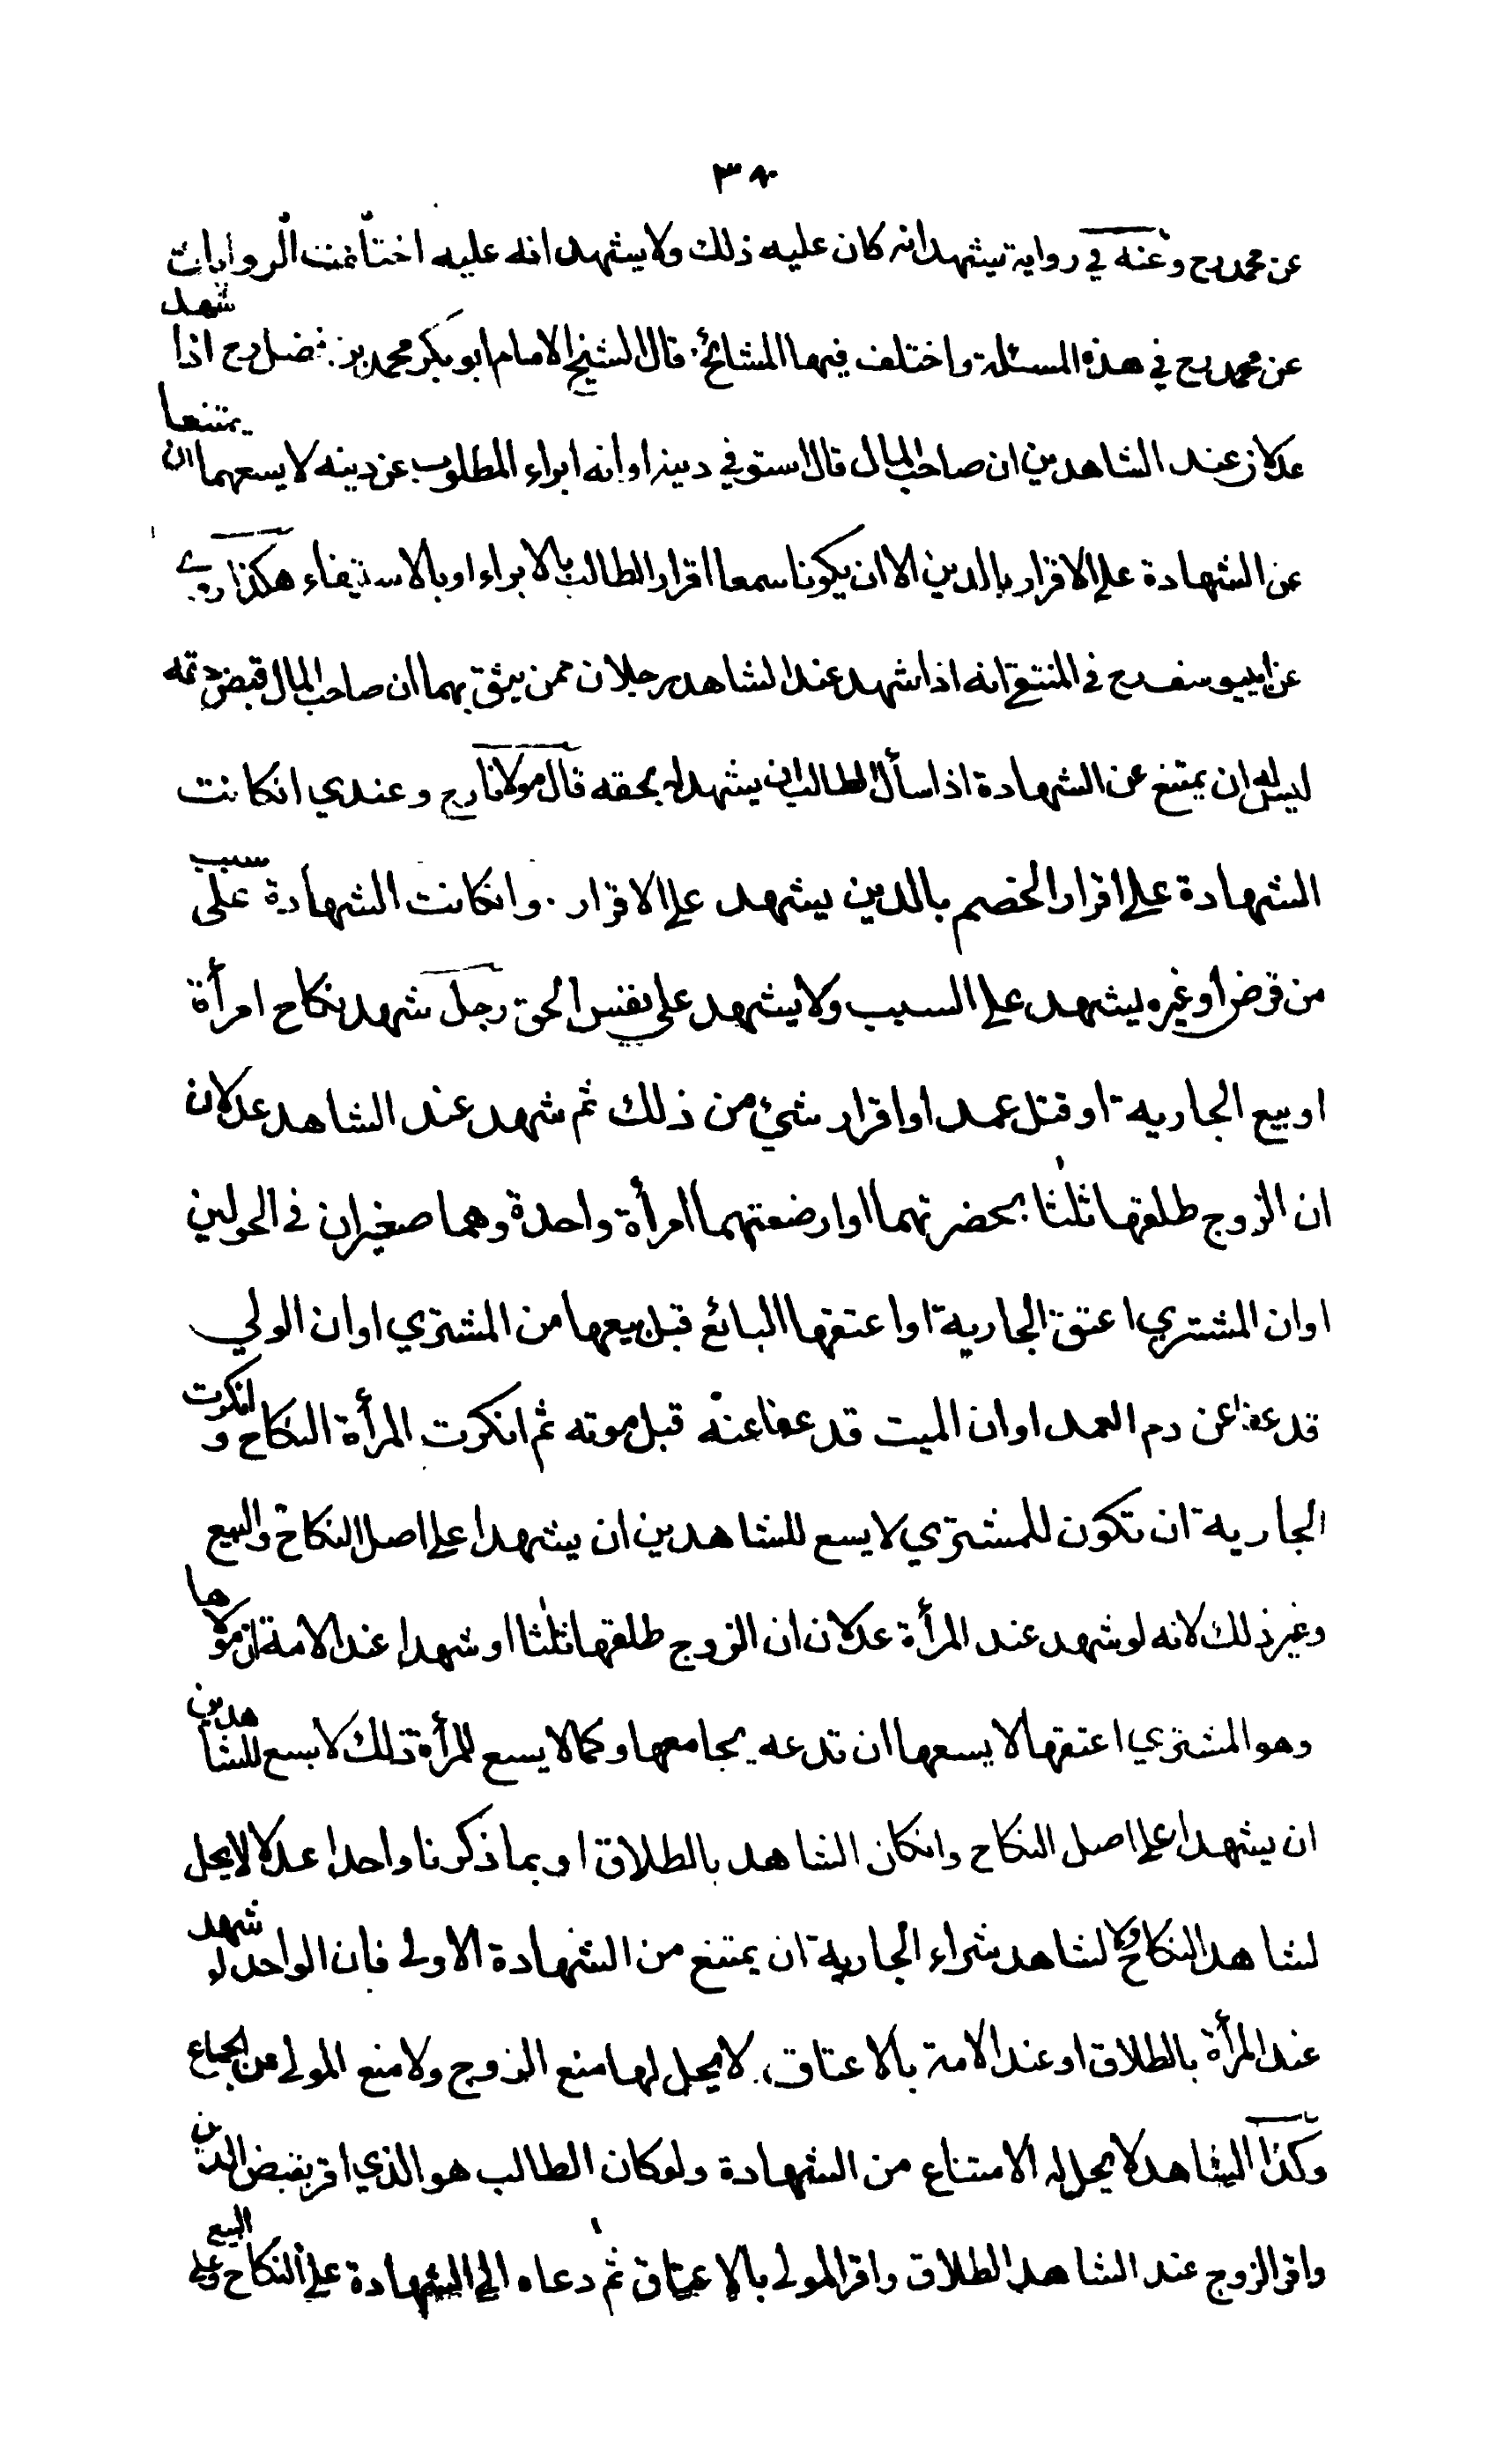 ٣٤
عن محمد رح وعنه في رواية يشهد انه كان عليه ذلك ولا يشهد انه عليه اختلفت الروايات
عن محمد رح في هذه المسئلة واختلف فيها المشائخ قال الشيخ الامام ابو بكر محمد بن فضل رح اذا شهد
عدلان عند الشاهدين ان صاحب المال قال استوفي دينه او انه ابراء المطلوب عن دينه لا يسعهما ان يمتنعا
عن الشهادة على الاقرار بالدين الا ان يكونا سمعا اقرار الطالب بالابراء او بالاستيفاء هكذا روي
عن ابي يوسف رح في المنتقى انه اذا شهد عند الشاهد رجلان ممن يثق بهما ان صاحب المال قبض حقه
ليس له ان يمتنع عن الشهادة اذا سأل الطالب ان يشهد له بحقه قال مولانا رح وعندي انكانت
الشهادة على اقرار الخصم بالدين يشهد على الاقرار . وانكانت الشهادة على سبب
من قرض او غيره يشهد على السبب ولا يشهد على نفس الحق رجل شهد نكاح امرأة
او بيع الجارية او قتل عمد او اقرار شئ من ذلك ثم شهد عند الشاهد عدلان
ان الزوج طلقها ثلثا بحضرتهما او ارضعتهما امرأة واحدة وهما صغيران في الحولين
او ان المشتري اعتق الجارية او اعتقها البائع قبل بيعها من المشتري او ان الولي
قد عفا عن دم العمد او ان الميت قد عفا عنه قبل موته ثم انكرت المرأة النكاح و انكرت
الجارية ان تكون للمشتري لا يسع للشاهدين ان يشهدا على اصل النكاح والبيع
وغير ذلك لانه لو شهد عند المرأة عدلان ان الزوج طلقها ثلثا او شهدا عند الامة ان مولاها
وهو المشتري اعتقها لا يسعها ان تدعه يجامعها وكما لا يسع للمرأة ذلك لا يسع للشاهدين
ان يشهدا على اصل النكاح وانكان الشاهد بالطلاق او بما ذكرنا واحدا عدلا لا يحل
لشاهد النكاح ولا لشاهد شراء الجارية ان يمتنع من الشهادة الاولى فان الواحد لو شهد
عند المرأة بالطلاق او عند الامة بالاعتاق، لا يحل لها منع الزوج ولا منع المولى عن الجماع
وكذا الشاهد لا يحل له الامتناع من الشهادة ولو كان الطالب هو الذي اقر بقبض الدين
واقر الزوج عند الشاهد الطلاق واقر المولى بالاعتاق ثم دعاه الى الشهادة على النكاح وعلى البيع